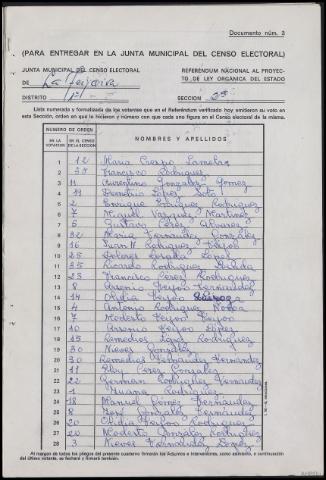 Documento núm. 3
(PARA ENTREGAR EN LA JUNTA MUNICIPAL DEL CENSO ELECTORAL)
JUNTA MUNICIPAL DEL CENSO ELECTORAL
DE La Teijeira
REFERENDUM NACIONAL AL PROYECTO DE LEY ORGANICA DEL ESTADO
DISTRITO 1º
SECCION
Lista numerada y formalizada de los votantes que en el Referéndum verificado hoy emitieron su voto en
esta Sección, orden en que lo hicieron y número con que cada uno figura en el Censo electoral de la misma.
NUMERO DE ORDEN
EN LA VOTACION
EN EL CENSO DE LA SECCION
NOMBRES Y APELLIDOS
1 12 Maria Crespo
2 Francisco Rodriguez
3 11 Gonzalez Gomez
4 Lopez
5 2 Enrique Rodriguez
6 7 Miguel Vazquez Martinez
7 5 Gustavo Perez Alvarez
8 32 Maria Fernandez Gonzalez
9 16 Juan Rodriguez Feijoo
10 25 Dolores Losada Lopez
11 35 Ricardo Rodriguez
12 23 Francisco Perez Rodriguez
13 8 Arsenio Feijoo Fernandez
14 14 Olidia Feijoo
15 4 Antonio Rodriguez
16 7 Modesto Feijoo Feijoo
17 10 Arsenio Feijoo Lopez
18 15 Remedios Lopez Rodriguez
19 30 Nieves Gonzalez
20 30 Remedios Fernandez Fernandez
21 11 Perez Gonzalez
22 22 German Rodriguez Fernandez
23 1 Rodriguez
24 18 Manuel Gomez Fernandez
25 8 José Gonzalez Fernandez
26 20 Olidia Feijoo Rodriguez
27 20 Modesto Gonzalez Rodriguez
28 3 Nieves Fernandez Lopez
Al margen de todos los pliegos del presente cuaderno firmarán los Adjuntos e Interventores, como asimismo, a continuación
del último votante, se fechará y firmará también.